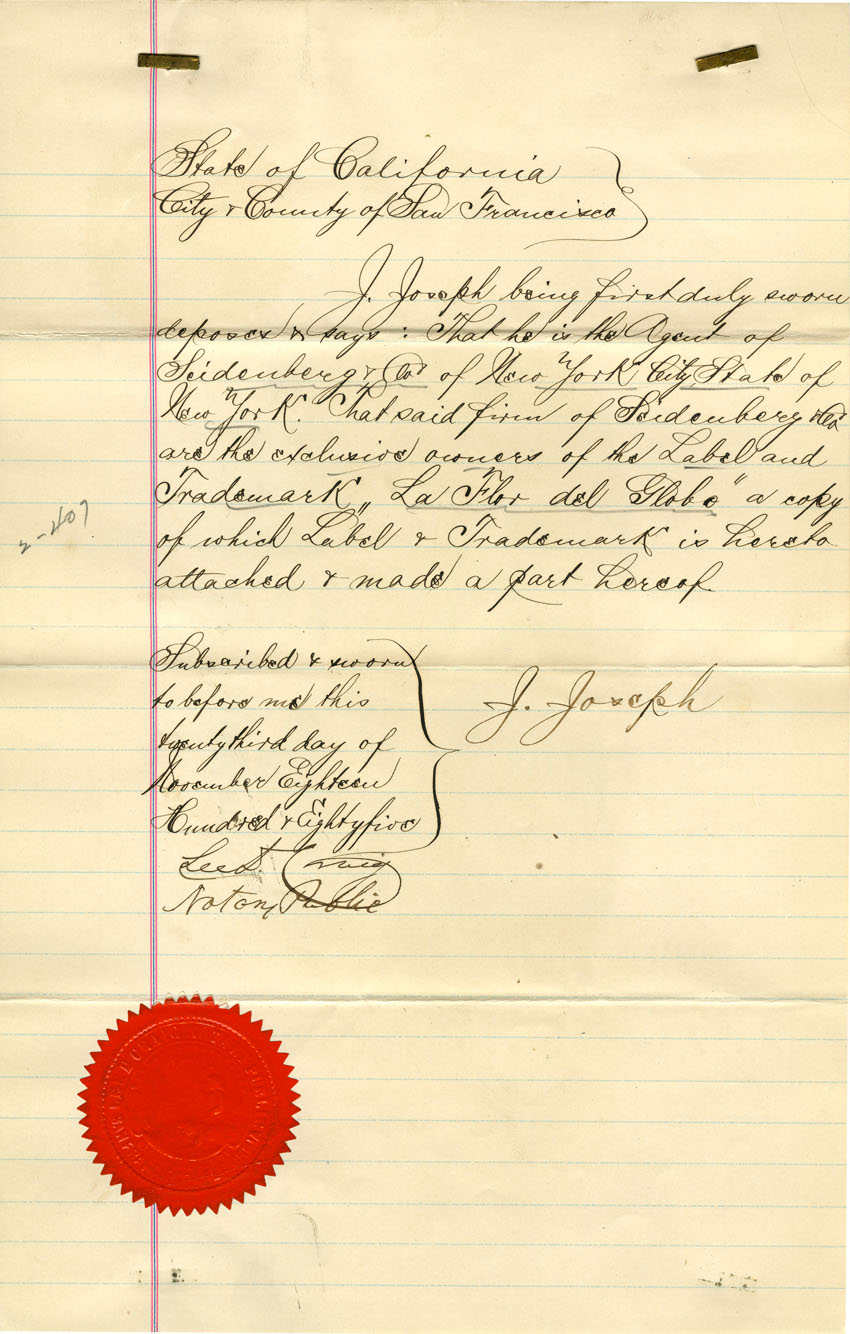 State of California
City & County of San Francisco
J. Joseph being first duly sworn
deposes & says : That he is the Agent of
Seidenberg & Co of New York City State of
New York. That said firm of Seidenberg & Co
are the exclusive owners of the Label and
Trademark „ La Flor del Globo " a copy
of which Label & Trademark is hereto
attached & made a part hereof.
2-407
Subscribed & sworn
to before me this
twentythird day of
November Eighteen
Hundred & Eightyfive
J. Joseph
Lee D. Craig
Notary Public